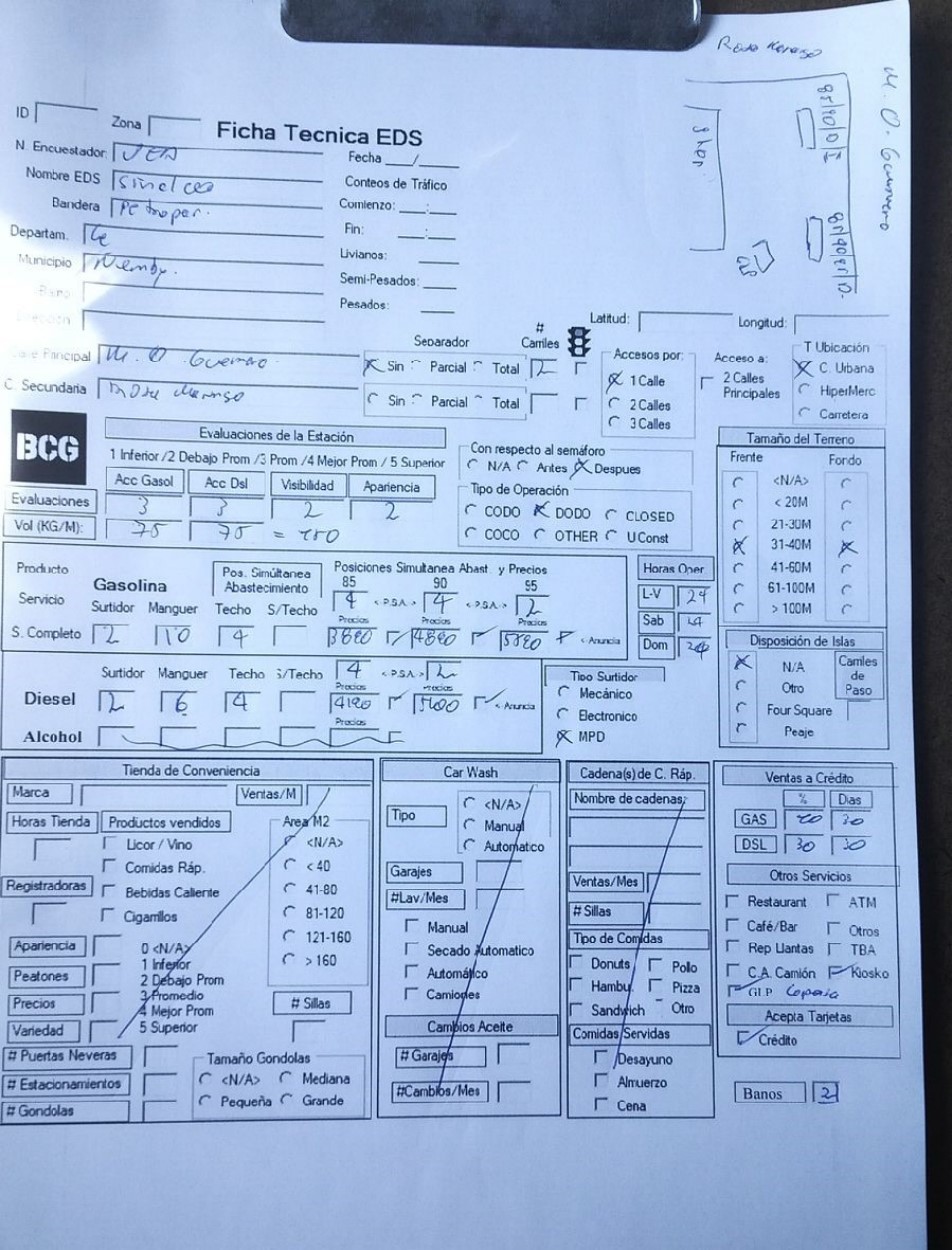 ID
Zona
Ficha Tecnica EDS
N. Encuestador
Nombre EDS
Bandera
Departam.
Municipio
Fecha __/__
Conteos de Tráfico
Comienzo: __:__
Fin: __:__
Livianos:
Semi-Pesados:
Pesados:
M. O. Guerrero
Shop
Latitud:
Longitud:
Principal M. O Guerrero
C. Secundaria
Separador
# Carriles
Sin Parcial Total 2
Sin Parcial Total
Accesos por:
1 Calle
2 Calles
3 Calles
Acceso a:
2 Calles Principales
T Ubicación
C. Urbana
HiperMerc
Carretera
BCG
Evaluaciones de la Estación
1 Inferior /2 Debajo Prom /3 Prom /4 Mejor Prom / 5 Superior
Acc Gasol Acc Dsl Visibilidad Apariencia
Evaluaciones 3 3 2 2
Vol (KG/M): 75 75 = 150
Con respecto al semáforo
N/A Antes Despues
Tipo de Operación
CODO DODO CLOSED
COCO OTHER UConst
Tamaño del Terreno
Frente Fondo
<N/A>
< 20M
21-30M
31-40M
41-60M
61-100M
> 100M
Producto
Servicio
Gasolina
Pos. Simúltanea Abastecimiento
Posiciones Simultanea Abast. y Precios
85 90 95
4 <-P.S.A-> 4 <-P.S.A-> 2
Surtidor Manguer Techo S/Techo Precios Precios Precios
S. Completo 2 10 4 3890 4890 <- Anuncia
Horas Oper
L-V 24
Sab 24
Dom 24
Disposición de Islas
N/A
Otro
Four Square
Peaje
Carriles de Paso
Surtidor Manguer Techo S/Techo 4 <-P.S.A-> 2
Precios Precios
Diesel 2 6 4 <- Anuncia
Precios
Alcohol
Tipo Surtidor
Mecánico
Electronico
MPD
Tienda de Conveniencia
Marca
Ventas/M
Horas Tienda
Productos vendidos
Licor / Vino
Comidas Ráp.
Bebidas Caliente
Cigarrillos
Registradoras
Area M2
<N/A>
< 40
41-80
81-120
121-160
> 160
Apariencia
Peatones
Precios
Variedad
0 <N/A>
1 Inferior
2 Debajo Prom
3 Promedio
4 Mejor Prom
5 Superior
# Sillas
# Puertas Neveras
# Estacionamientos
# Gondolas
Tamaño Gondolas
<N/A> Mediana
Pequeña Grande
Car Wash
Tipo
<N/A>
Manual
Automatico
Garajes
#Lav/Mes
Manual
Secado Automatico
Automático
Camiones
Cambios Aceite
# Garajes
#Cambios/Mes
Cadena(s) de C. Ráp.
Nombre de cadenas:
Ventas/Mes
# Sillas
Tipo de Comidas
Donuts Pollo
Hambu. Pizza
Sandwich Otro
Comidas Servidas
Desayuno
Almuerzo
Cena
Ventas a Crédito
% Dias
GAS 30
DSL 30 30
Otros Servicios
Restaurant ATM
Café/Bar Otros
Rep Llantas TBA
C.A. Camión Kiosko
GLP
Acepta Tarjetas
Crédito
Banos 2